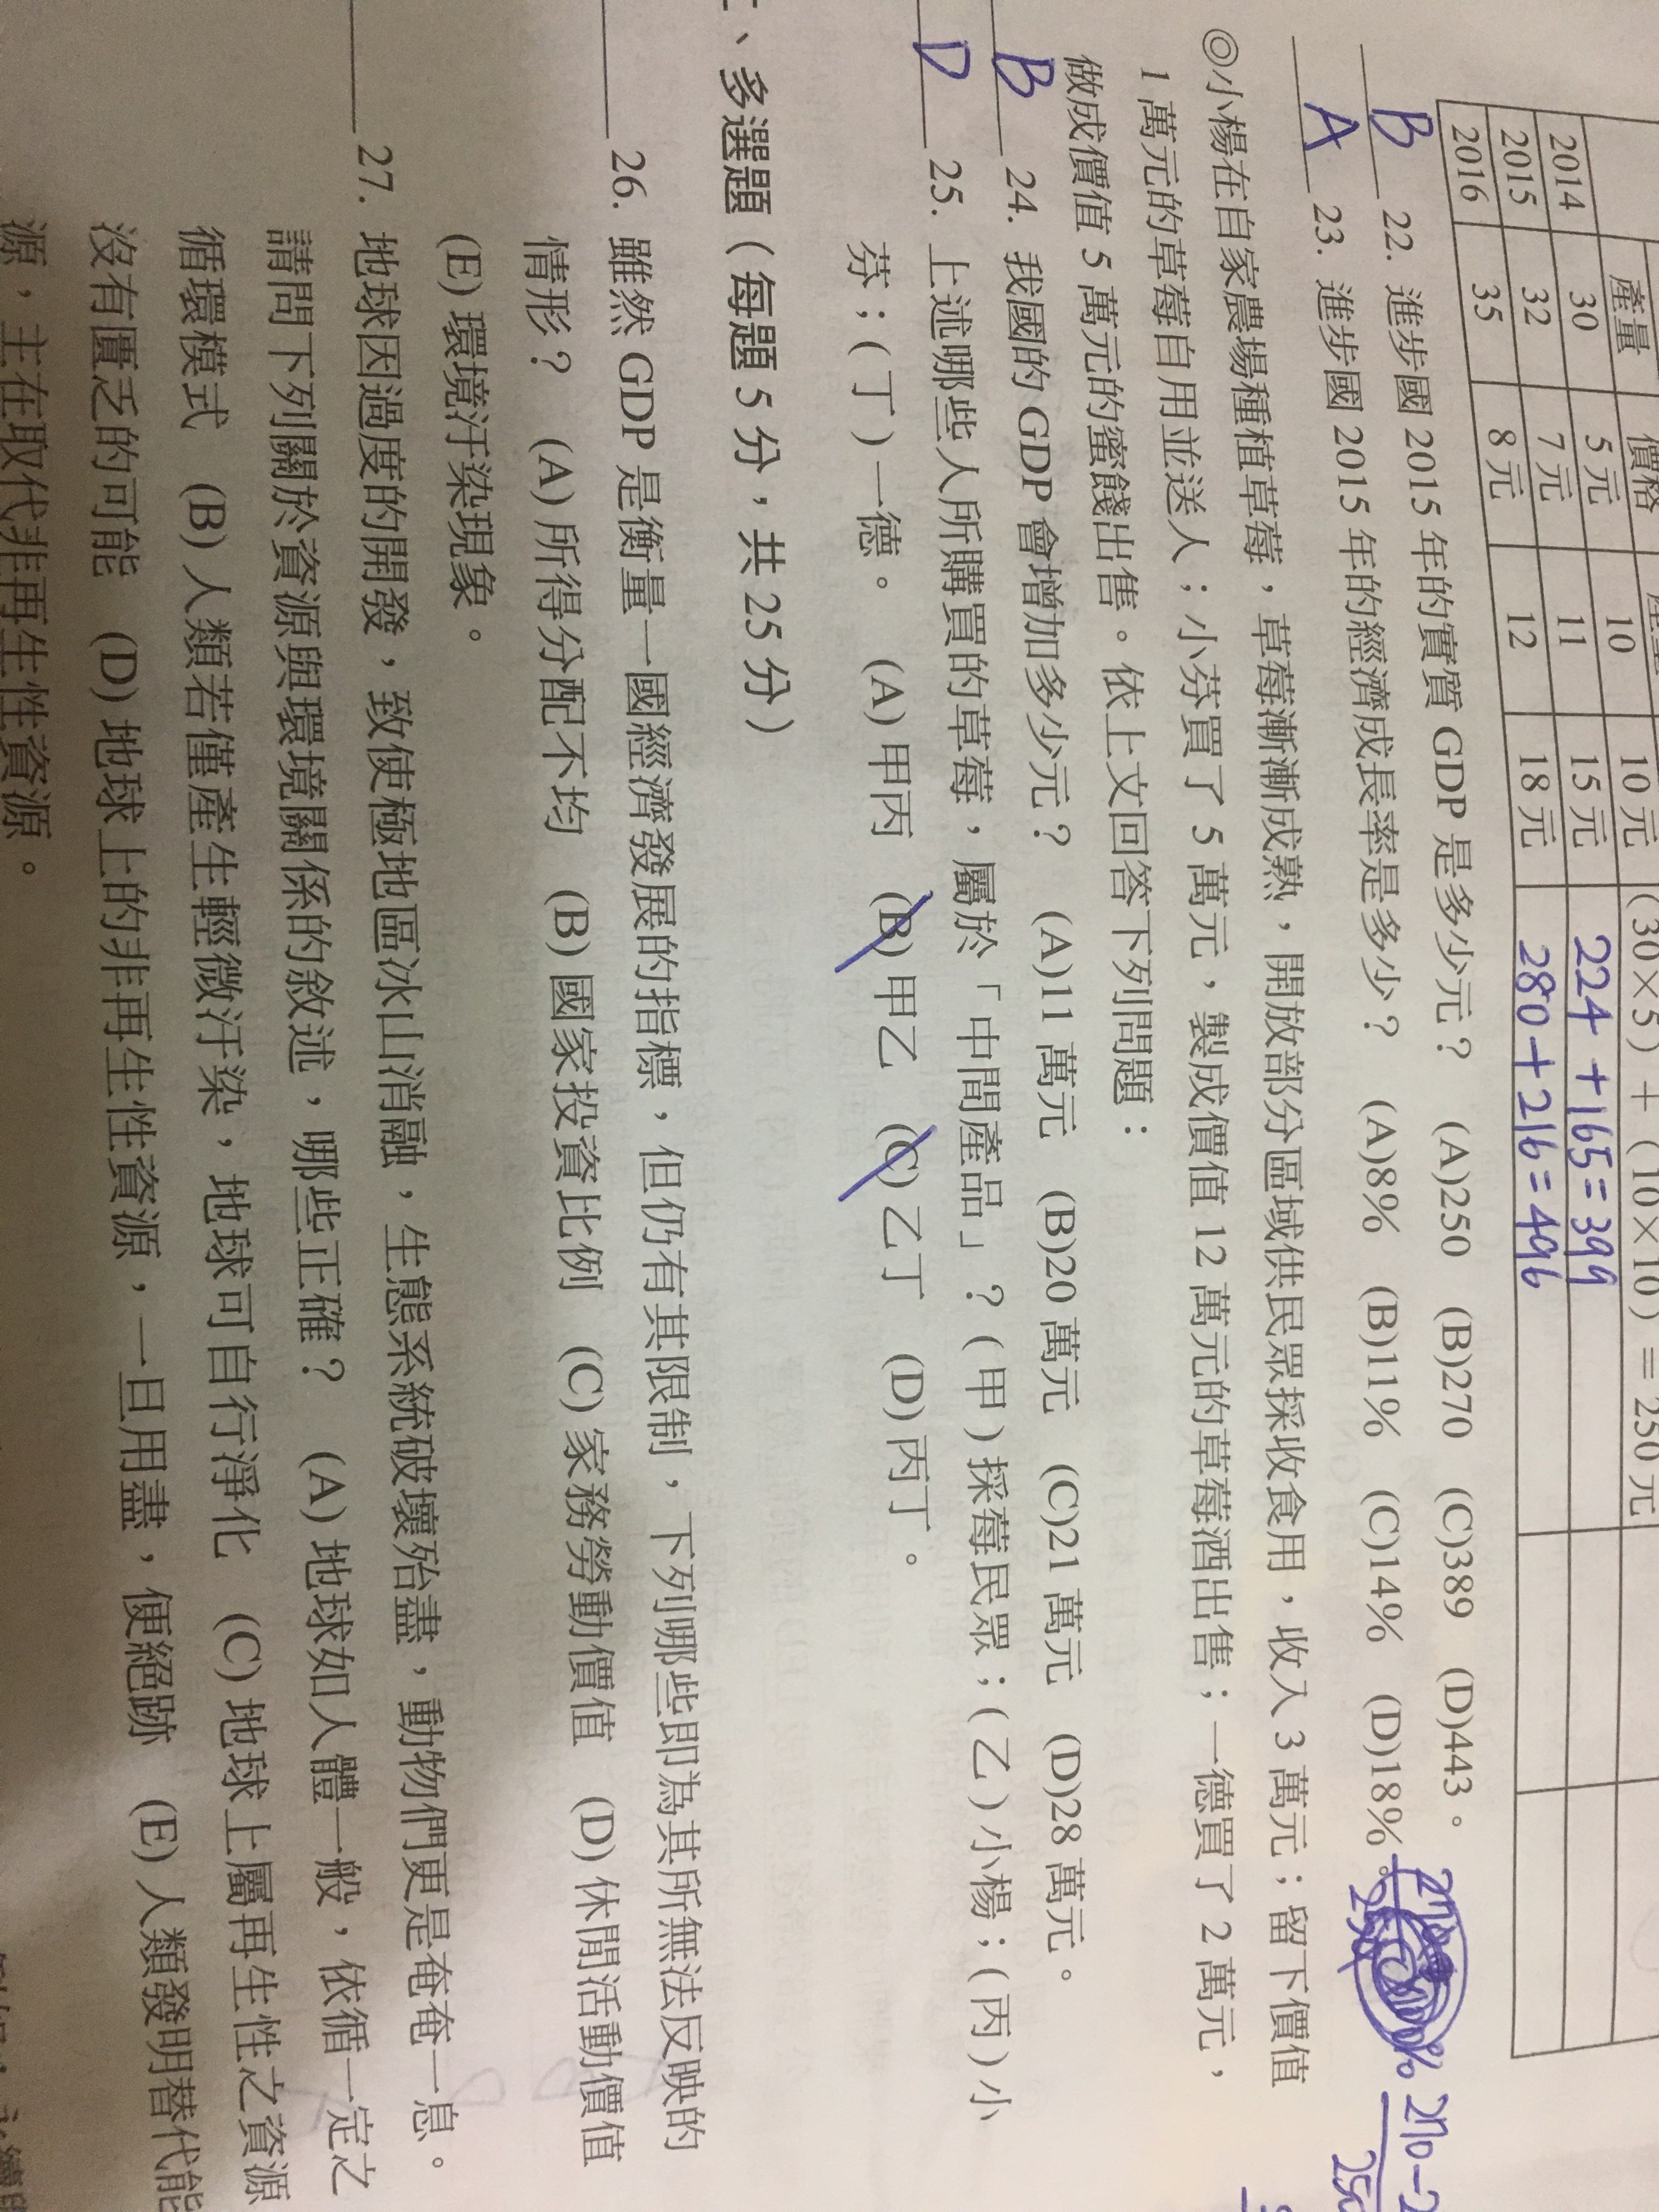 產量 價格 產量
2014 30 5元 10 10元 (30×5) + (10×10) = 250元
2015 32 7元 11 15元 224 + 165 = 399
2016 35 8元 12 18元 280 + 216 = 496
B 22. 進步國 2015 年的實質 GDP 是多少元? (A)250 (B)270 (C)389 (D)443。
A 23. 進步國 2015 年的經濟成長率是多少? (A)8% (B)11% (C)14% (D)18%。
270-2
250
◎小楊在自家農場種植草莓,草莓漸漸成熟,開放部分區域供民眾採收食用,收入 3 萬元;留下價值
1 萬元的草莓自用並送人;小芬買了 5 萬元,製成價值 12 萬元的草莓酒出售;一德買了 2 萬元,
做成價值 5 萬元的蜜餞出售。依上文回答下列問題:
B 24. 我國的 GDP 會增加多少元? (A)11 萬元 (B)20 萬元 (C)21 萬元 (D)28 萬元。
D 25. 上述哪些人所購買的草莓,屬於「中間產品」?(甲)採莓民眾;(乙)小楊;(丙)小
芬;(丁)一德。 (A)甲丙 (B)甲乙 (C)乙丁 (D)丙丁。
、多選題(每題 5 分,共 25 分)
26. 雖然 GDP 是衡量一國經濟發展的指標,但仍有其限制,下列哪些即為其所無法反映的
情形? (A)所得分配不均 (B)國家投資比例 (C)家務勞動價值 (D)休閒活動價值
(E)環境汙染現象。
27. 地球因過度的開發,致使極地區冰山消融,生態系統破壞殆盡,動物們更是奄奄一息。
請問下列關於資源與環境關係的敘述,哪些正確? (A)地球如人體一般,依循一定之
循環模式 (B)人類若僅產生輕微汙染,地球可自行淨化 (C)地球上屬再生性之資源
沒有匱乏的可能 (D)地球上的非再生性資源,一旦用盡,便絕跡 (E)人類發明替代能
源,主在取代非再生性資源。